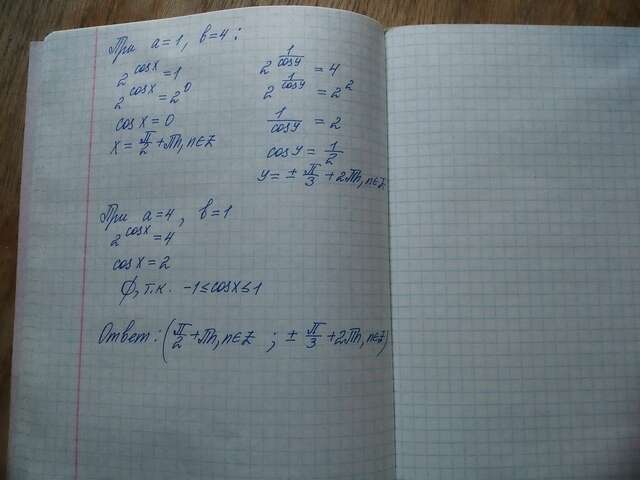 При a=1, b=4:
2^cosx = 1
2^cosx = 2^0
cosx = 0
x = π/2 + πn, n∈Z
2^(1/cosy) = 4
2^(1/cosy) = 2^2
1/cosy = 2
cosy = 1/2
y = ± π/3 + 2πn, n∈Z
При a=4, b=1
2^cosx = 4
cosx = 2
∅, т.к. -1≤cosx≤1
Ответ: (π/2 + πn, n∈Z ; ± π/3 + 2πn, n∈Z)